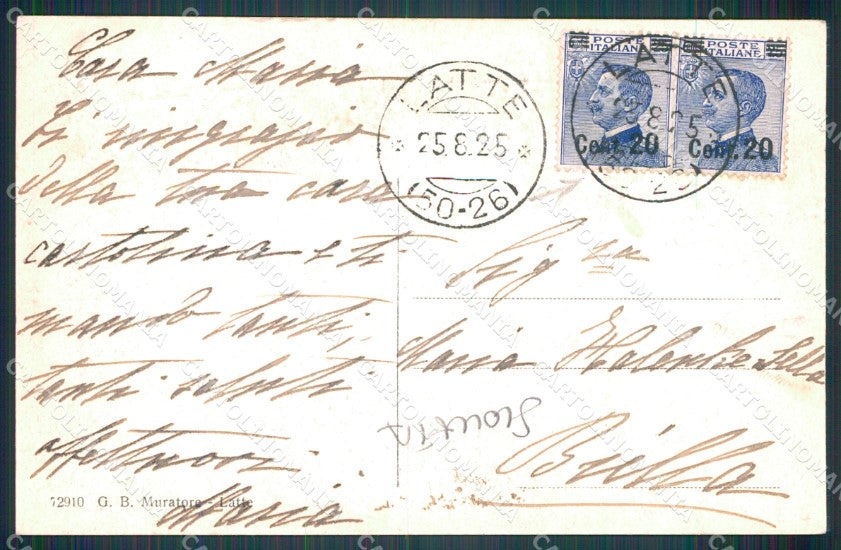 Cara Maria
Ti ringrazio
della tua cara
cartolina e ti
mando tanti,
tanti saluti
affettuosi.
Maria
72910 G. B. Muratore - Latte
LATTE
25.8.25
(50-26)
POSTE ITALIANE
Cent. 20
POSTE ITALIANE
Cent. 20
LATTE
25.8.25
Sig.ra
Maria
Biella
CARTOLINOMANIA